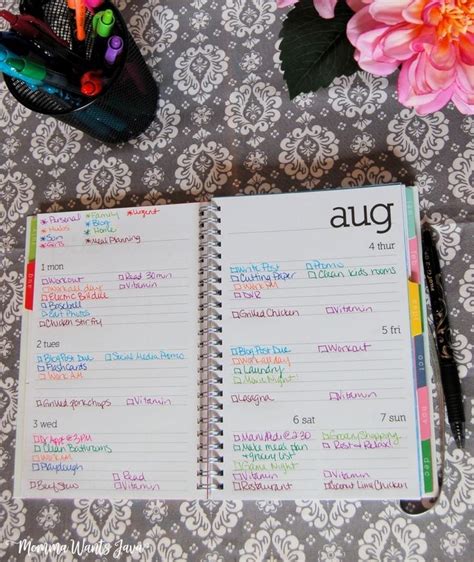 *Personal *Family *Urgent
*Hubs *Blog
*Son *Home
*Girls *Meal Planning
aug
1 mon
Workout Read 30min
Work all day Vitamin
Electric Bill due
Baseball
Edit Photos
Chicken Stir fry
2 tues
Blog Post Due Social Media Promo
Flashcards
Work AM
Grilled porkchops Vitamin
3 wed
Dr Appt @ 3PM
Clean Bathrooms
Work AM
Playdough
Read
Beef Stew Vitamin
4 thur
Write Post Promo
Cutting Paper Clean kids rooms
Work 
DVR
Grilled Chicken Vitamin
5 fri
Blog Post Due Workout
Work all day
Laundry
Movie Night
Lasagna Vitamin
6 sat
Mani/Pedi @ 2:30
Make meal plan
& grocery list
Game Night
Vitamin
Restaurant
7 sun
Grocery Shopping
Rest and Relax!
Vitamin
Coconut Lime Chicken
oct
dec
Momma Wants Java